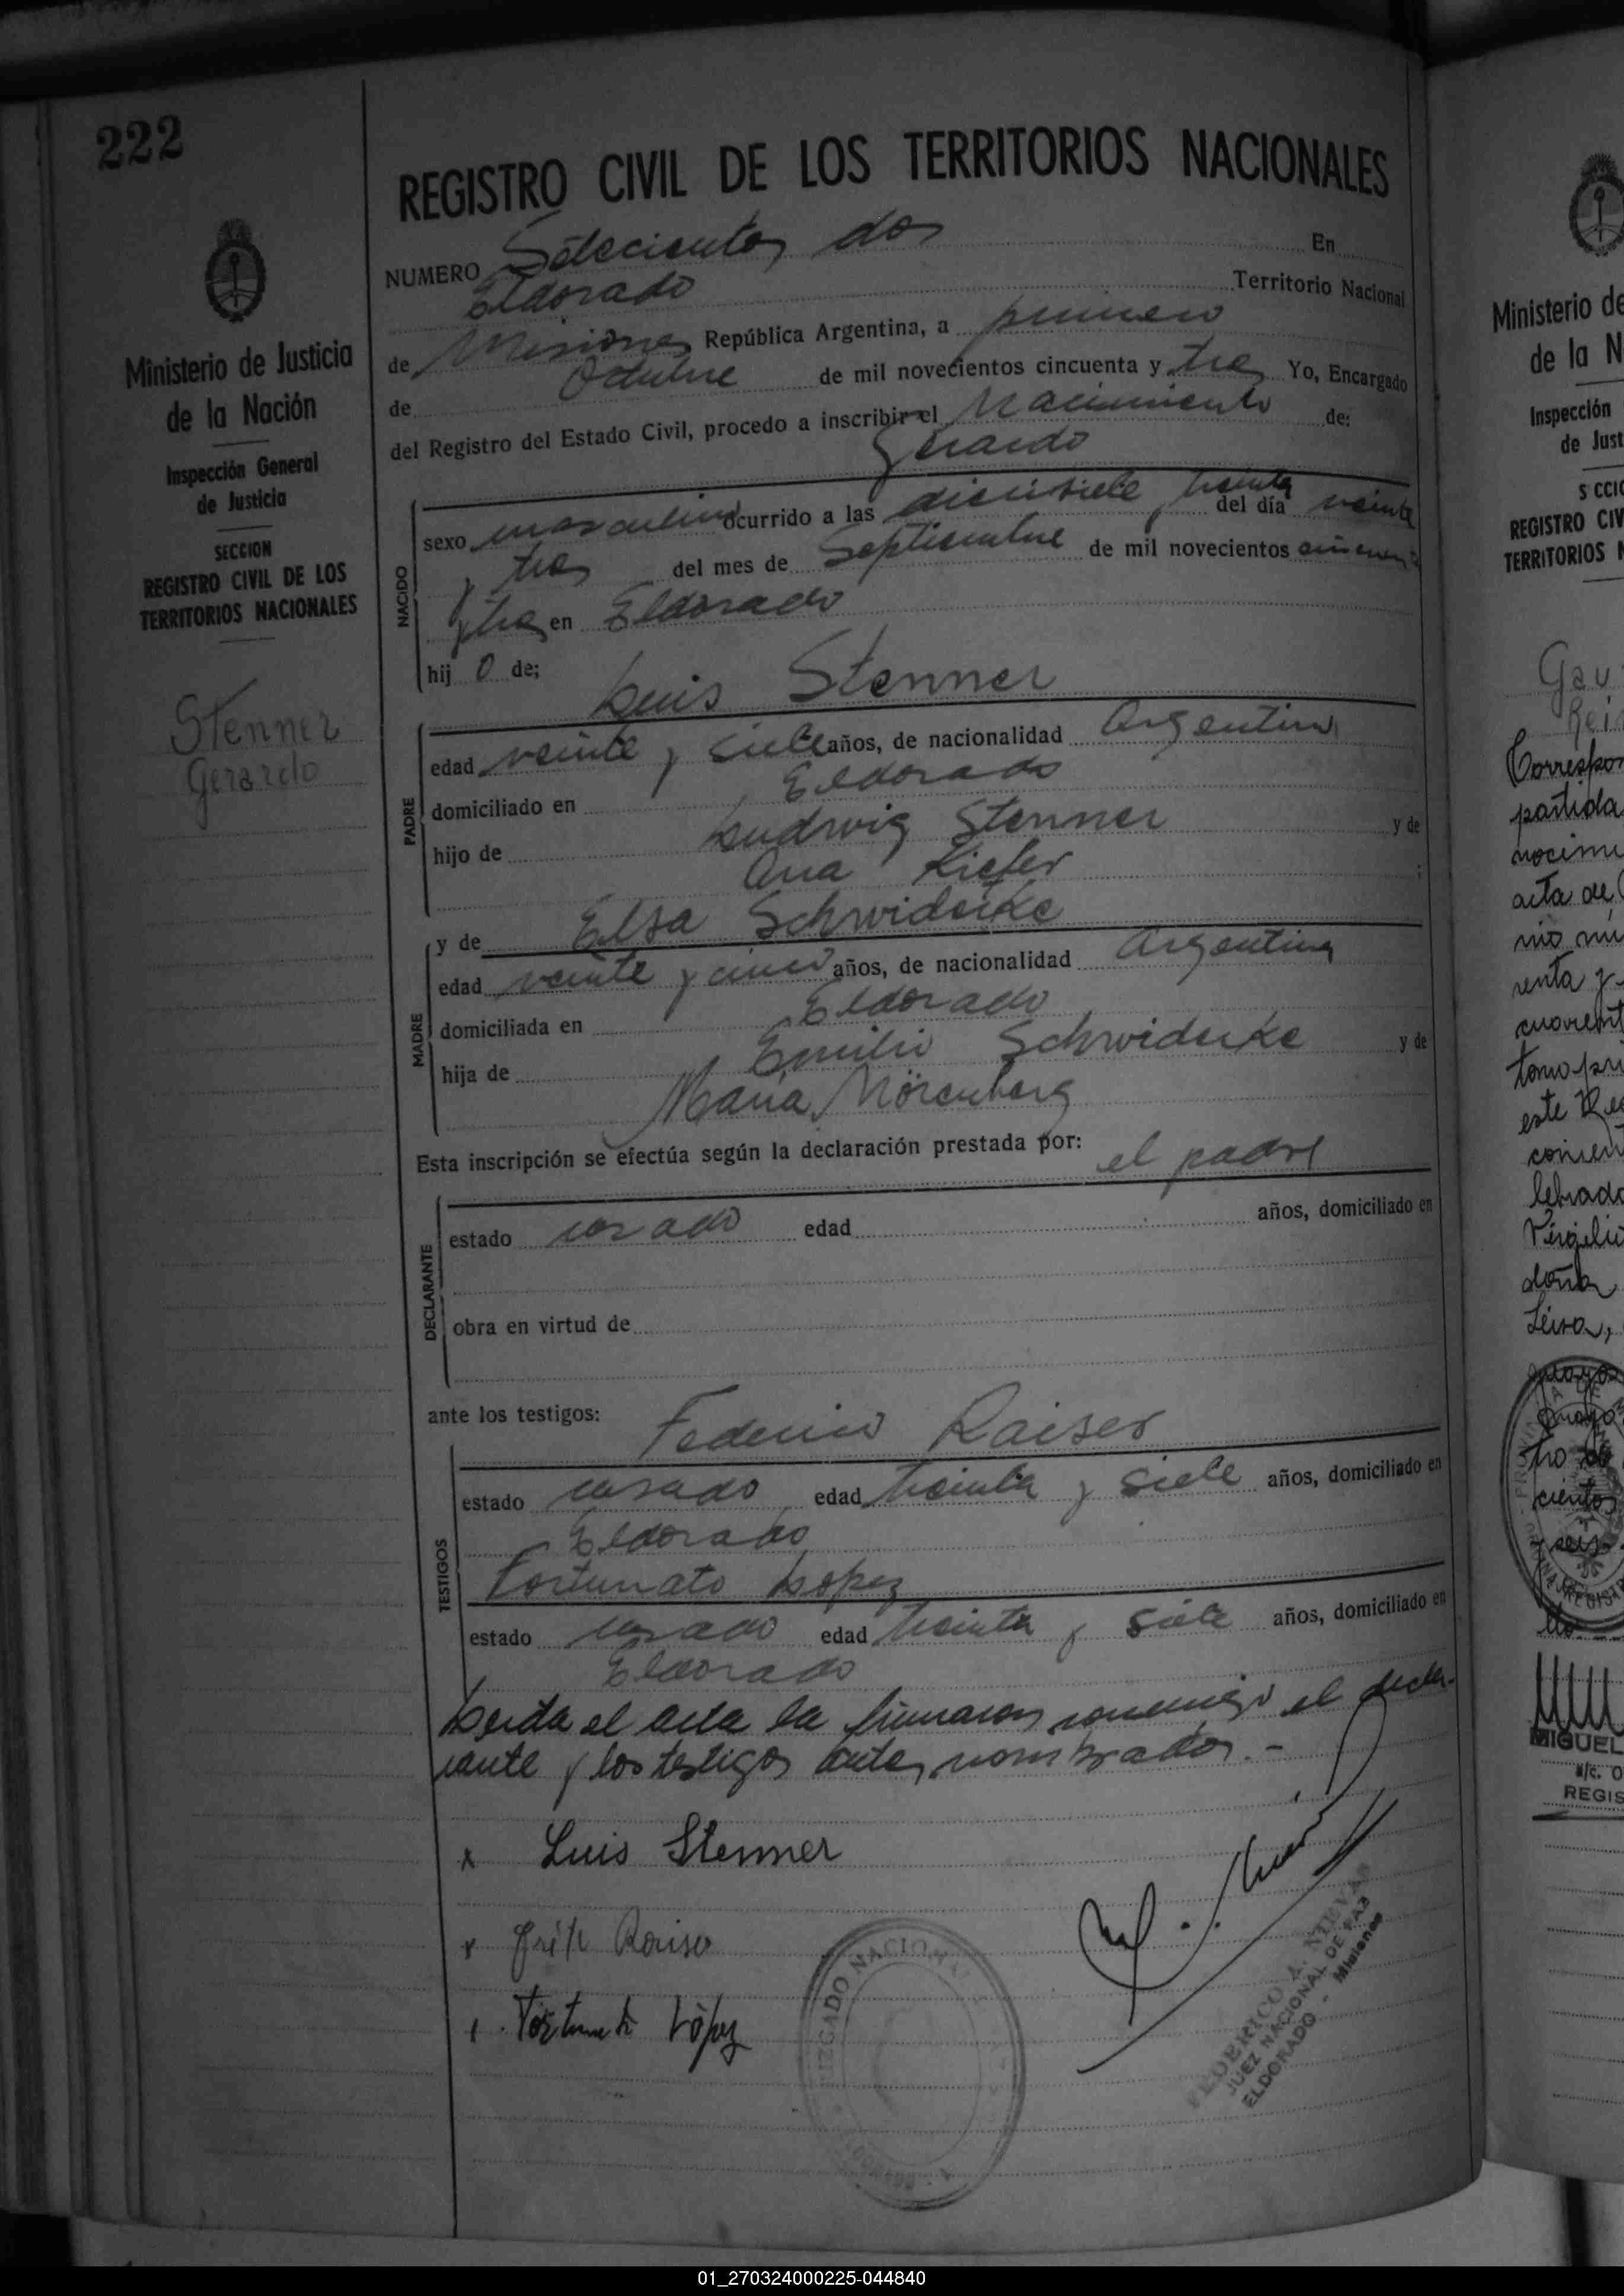 222
Ministerio de Justicia
de la Nación
Inspección General
de Justicia
SECCION
REGISTRO CIVIL DE LOS
TERRITORIOS NACIONALES
Stenner
Gerardo
REGISTRO CIVIL DE LOS TERRITORIOS NACIONALES
NUMERO Setecientos dos En
Eldorado Territorio Nacional
de Misiones República Argentina, a primero
de Octubre de mil novecientos cincuenta y tres Yo, Encargado
del Registro del Estado Civil, procedo a inscribir el Nacimiento de:
Gerardo
NACIDO
sexo masculino ocurrido a las diecisiete, treinta del día veinte
y tres del mes de Septiembre de mil novecientos cincuenta
y tres en Eldorado
hij o de;
Luis Stenner
PADRE
edad veinte y siete años, de nacionalidad Argentina
domiciliado en Eldorado
hijo de Ludwig Stenner y de
Ana Kiefer ;
y de Elsa Schwiderke
MADRE
edad veinte y cinco años, de nacionalidad Argentina
domiciliada en Eldorado
hija de Emilio Schwiderke y de
Maria Mörenberg
Esta inscripción se efectúa según la declaración prestada por: el padre
DECLARANTE
estado casado edad años, domiciliado en
obra en virtud de
ante los testigos: Federico Raiser
TESTIGOS
estado casado edad treinta y siete años, domiciliado en
Eldorado
Fortunato Lopez
estado casado edad treinta y siete años, domiciliado en
Eldorado
Leida el acta la firmaron conmigo el decla-
rante y los testigos antes nombrados.-
x Luis Stenner
Raiser
Fortunato López
JUZGADO NACIONAL
FEDERICO A. NIEVAS
JUEZ NACIONAL DE PAZ
ELDORADO - Misiones
Ministerio de
de la N
Inspección
de Just
S CCI
REGISTRO CIV
TERRITORIOS N
Gau
Rei
Correspon
partida
nocimi
acta de
mo mi
renta y
cuarent
tomo pri
este Re
conien
lebrado
Virgilio
doña
ciento
y seis
MIGUEL
a/c. O
REGIS
01_270324000225-044840